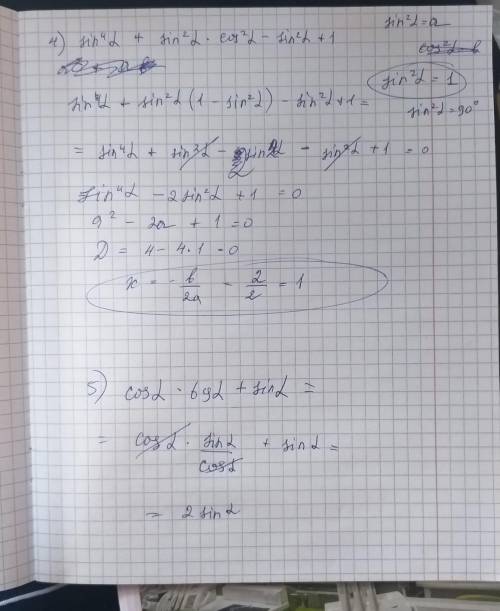 4) sin⁴α + sin²α · cos²α − sin²α + 1
sin²α = a
sin²α = 1
sin²α = 90°
sin⁴α + sin²α (1 − sin²α) − sin²α + 1 =
= sin⁴α + sin²α − sin²α + 1 = 0
sin⁴α − 2sin²α + 1 = 0
a² − 2a + 1 = 0
D = 4 − 4·1 = 0
x = − b/2a − 2/2 = 1
5) cosα · tgα + sinα =
= cosα · sinα/cosα + sinα =
= 2 sinα